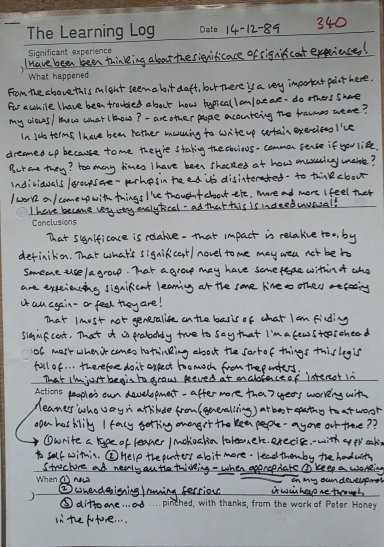 The Learning Log Date 14-12-89 340
Significant experience
I have been thinking about the significance of significant experiences!
What happened
From the above this might seem a bit daft, but there is a very important point here.
For a while I have been troubled about how typical I am/we are - do others share
my views/know what I know? - are other people encountering the traumas we are?
In job terms I have been rather unwilling to write up certain exercises I've
dreamed up because to me they're stating the obvious - common sense if you like.
But are they? too many times I have been shocked at how unwilling/unable?
individuals/groups are - perhaps in the end it's disinterested - to think about
/work on/come up with things I've thought about etc. more and more I feel that
I have become very very analytical - and that this is indeed unusual!
Conclusions
That significance is relative - that impact is relative too, by
definition. That what's significant/novel to me may well not be to
someone else/a group. That a group may have some people within it who
are experiencing significant learning at the same time as others are facing
it again - or feel they are!
That I must not generalise on the basis of what I am finding
significant. That it is probably true to say that I'm a few steps ahead
of most when it comes to thinking about the sort of things this log is
full of... therefore don't expect too much from the
That I'm just begin to grow peeved at an absence of interest in
Actions people's own development - after more than 7 years working with
learners who vary in attitude from (generalising) at best apathy to at worst
open hostility I fancy getting amongst the keen people - are you out there??
① write a type of learner/motivation to learn etc. exercise - with application
to self within. ② Help the a bit more - lead them by the hand with
structure and nearly on the thinking - when appropriate ③ keep a working
When ① now on my own development
② when designing/running sessions. it will help me through
③ ditto one... ad .... pinched, with thanks, from the work of Peter Honey
in the future...